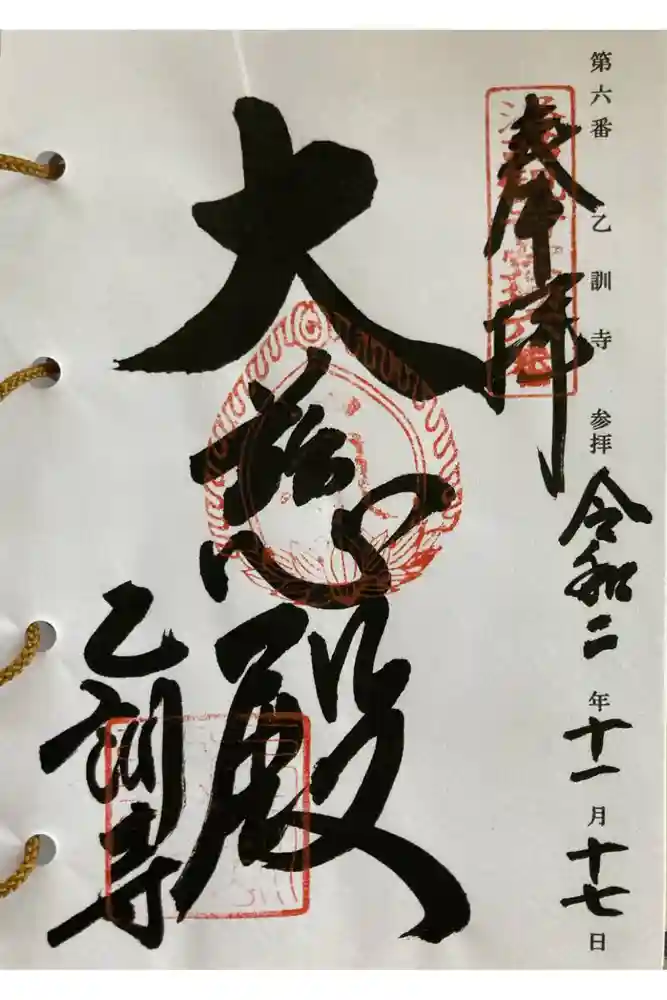 第六番 乙訓寺 参拝
令和二年十一月十七日
奉拝
大慈殿
乙訓寺